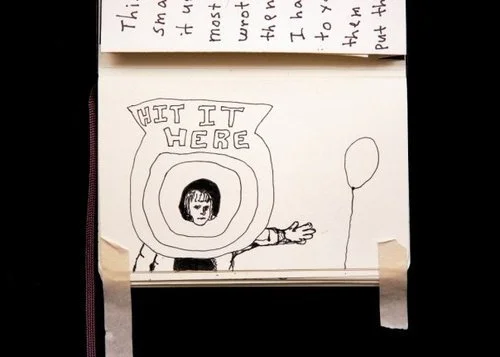 Thi
sma
it u
most
wrot
then
I ha
to yo
them
put th
HIT IT
HERE